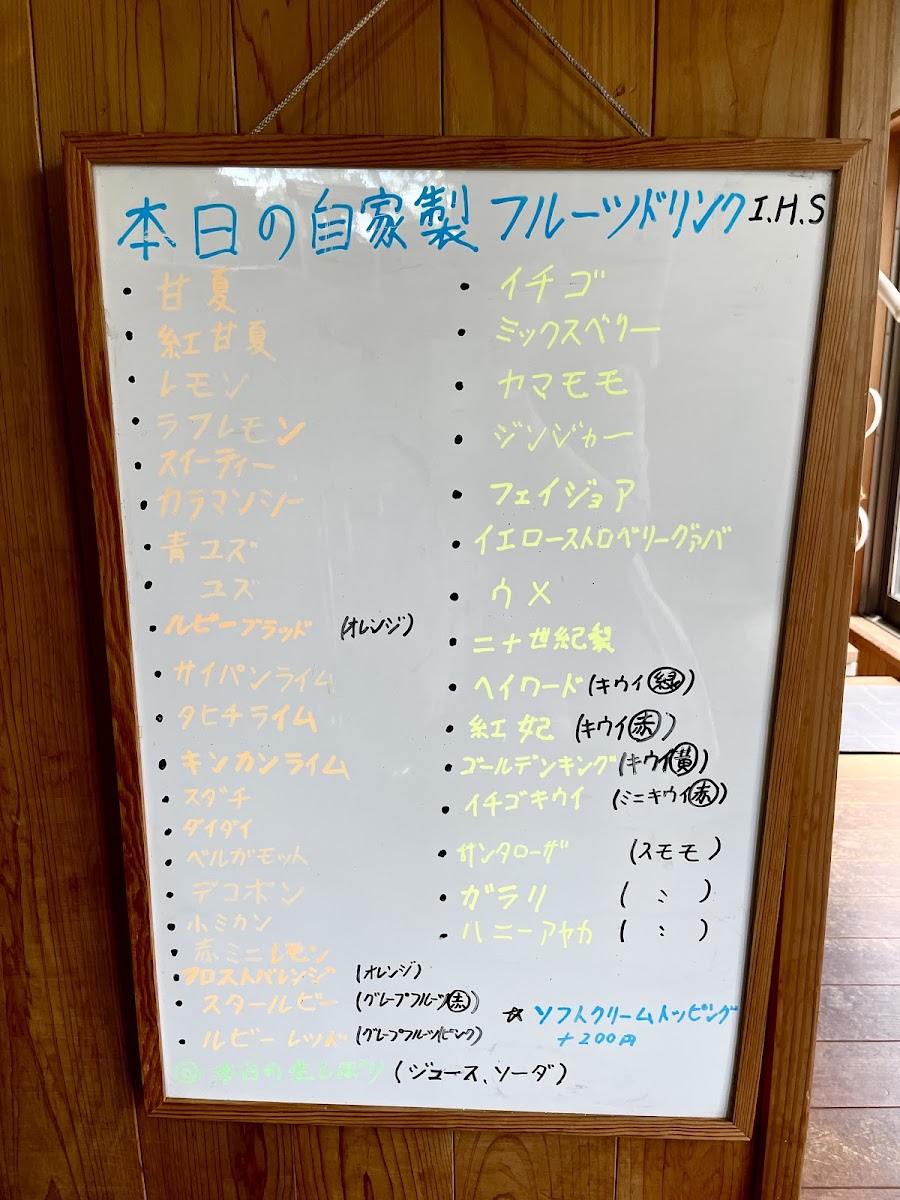 本日の自家製 フルーツドリンク I.H.S
・甘夏
・紅甘夏
・レモン
・ラフレモン
・スイーティー
・カラマンシー
・青ユズ
・ユズ
・ルビーブラッド (オレンジ)
・サイパンライム
・タヒチライム
・キンカンライム
・スダチ
・ダイダイ
・ベルガモット
・デコポン
・小ミカン
・赤ミニレモン
・フロストバレンシア (オレンジ)
・スタールビー (グレープフルーツ赤)
・ルビーレッド (グレープフルーツピンク)
◎本日の生しぼり (ジュース、ソーダ)
・イチゴ
・ミックスベリー
・ヤマモモ
・ジンジャー
・フェイジョア
・イエローストロベリーグァバ
・ウメ
・二十世紀梨
・ヘイワード (キウイ緑)
・紅妃 (キウイ赤)
・ゴールデンキング (キウイ黄)
・イチゴキウイ (ミニキウイ赤)
・サンタローザ (スモモ)
・ガラリ (〃)
・ハニーアヤカ (〃)
☆ ソフトクリームトッピング
+200円